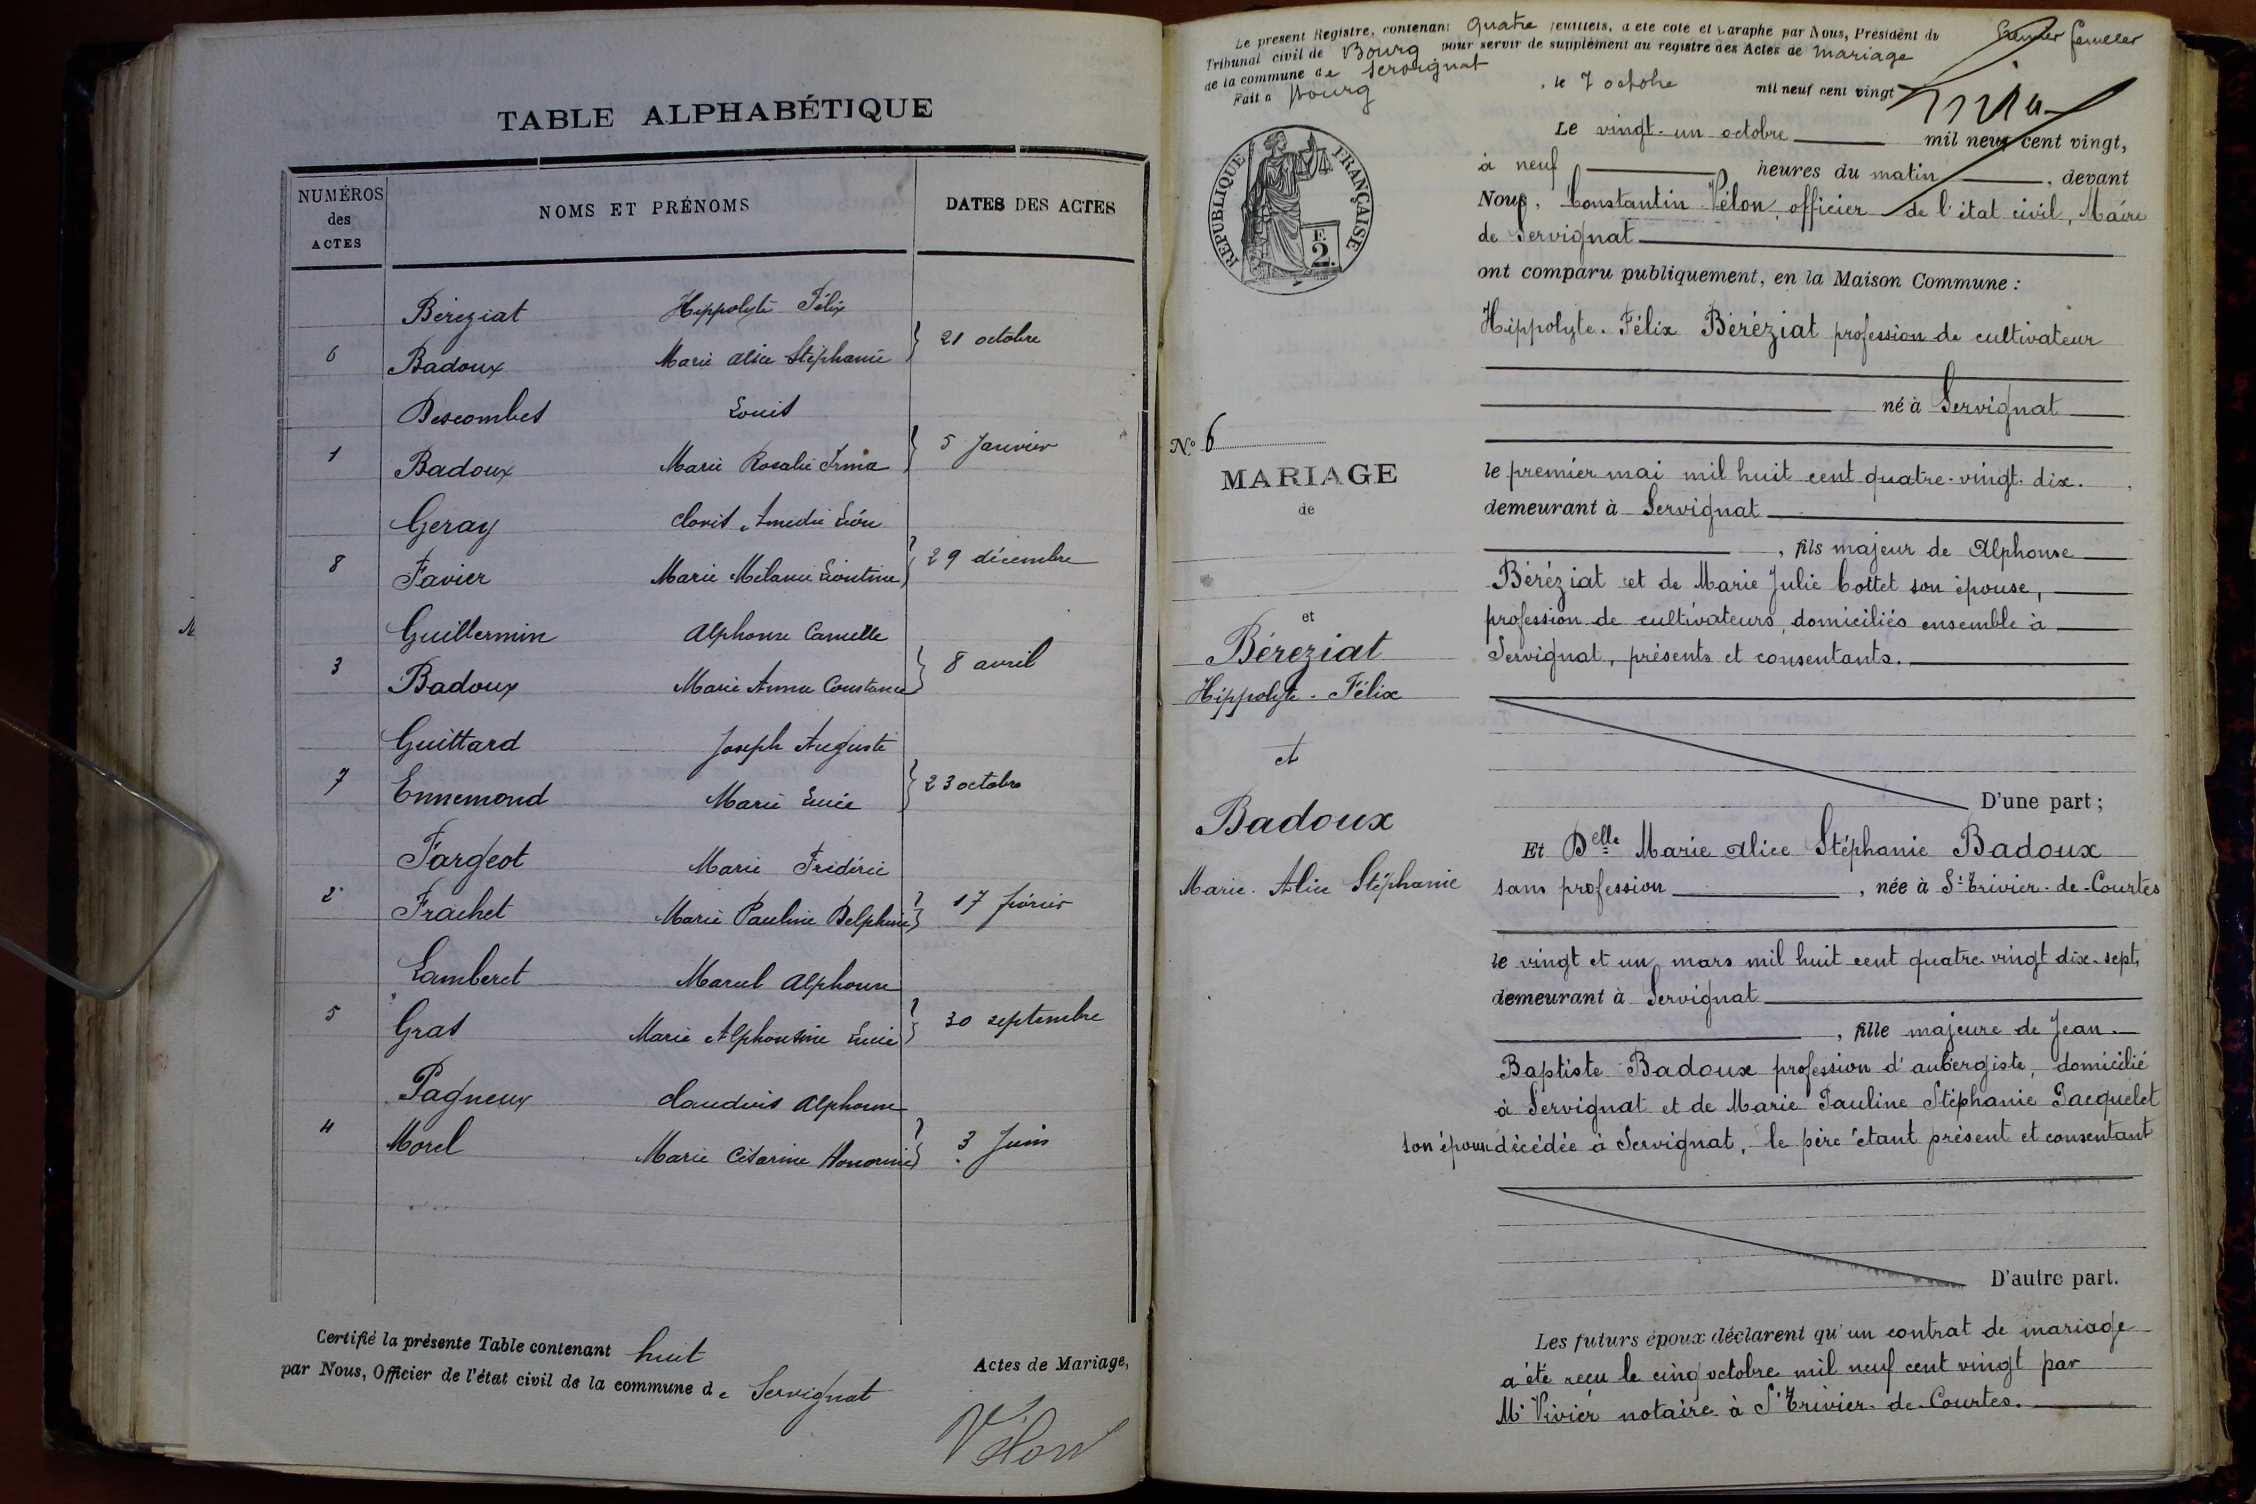 TABLE ALPHABÉTIQUE
NUMÉROS des ACTES
NOMS ET PRÉNOMS
DATES DES ACTES
Béréziat Hippolyte Félix
6 Badoux Marie Alice Stéphanie } 21 octobre
Descombes Louis
1 Badoux Marie Rosalie Irma } 5 Janvier
Geray Clovis Amédée Léon
8 Favier Marie Mélanie Léontine } 29 décembre
Guillermin Alphonse Camille
3 Badoux Marie Anna Constance } 8 avril
Guittard Joseph Auguste
7 Ennemond Marie Lucie } 23 octobre
Fargeot Marie Frédéric
2 Frachet Marie Pauline Delphine } 17 février
Lamberet Marcel Alphonse
5 Gras Marie Alphonsine Lucie } 30 septembre
Pagneux Claudius Alphonse
4 Morel Marie Césarine Honorine } 3 Juin
Certifié la présente Table contenant huit Actes de Mariage,
par Nous, Officier de l'état civil de la commune de Servignat
Vélon
Le présent Registre, contenant quatre feuillets, a été coté et paraphé par Nous, Président du
Tribunal civil de Bourg pour servir de supplément au registre des Actes de mariage
de la commune de Servignat
Fait à Bourg, le 7 octobre mil neuf cent vingt
feuillet
RÉPUBLIQUE FRANÇAISE
F. 2.
Le vingt-un octobre mil neuf cent vingt,
à neuf heures du matin, devant
Nous, Constantin Vélon officier de l'état civil, Maire
de Servignat
ont comparu publiquement, en la Maison Commune :
Hippolyte-Félix Béréziat profession de cultivateur
né à Servignat
le premier mai mil huit cent quatre-vingt-dix.
demeurant à Servignat
, fils majeur de Alphonse
Béréziat et de Marie Julie Cottet son épouse,
profession de cultivateurs, domiciliés ensemble à
Servignat, présents et consentants.
D'une part ;
N° 6
MARIAGE
de
et
Béréziat
Hippolyte-Félix
et
Badoux
Marie-Alice Stéphanie
Et Delle Marie Alice Stéphanie Badoux
sans profession, née à St Trivier-de-Courtes
le vingt et un mars mil huit cent quatre-vingt dix-sept,
demeurant à Servignat
, fille majeure de Jean-
Baptiste Badoux profession d'aubergiste, domicilié
à Servignat et de Marie Pauline Stéphanie Jacquelet
son épouse décédée à Servignat, le père étant présent et consentant
D'autre part.
Les futurs époux déclarent qu'un contrat de mariage
a été reçu le cinq octobre mil neuf cent vingt par
Me Vivier notaire à St Trivier-de-Courtes.